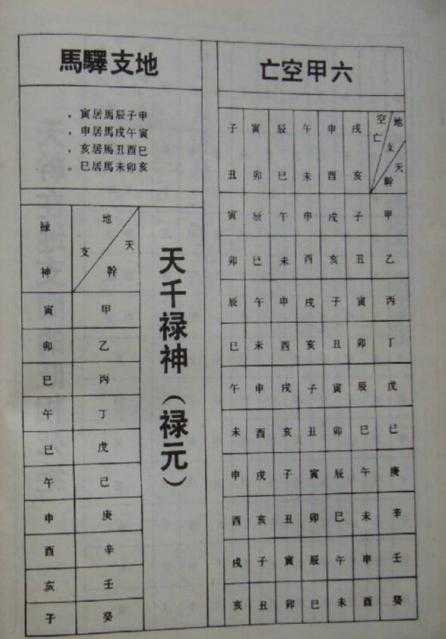 六甲空亡
地支 空亡 天幹
戌 申 午 辰 寅 子
亥 酉 未 巳 卯 丑
甲 子 戌 申 午 辰 寅
乙 丑 亥 酉 未 巳 卯
丙 寅 子 戌 申 午 辰
丁 卯 丑 亥 酉 未 巳
戊 辰 寅 子 戌 申 午
己 巳 卯 丑 亥 酉 未
庚 午 辰 寅 子 戌 申
辛 未 巳 卯 丑 亥 酉
壬 申 午 辰 寅 子 戌
癸 酉 未 巳 卯 丑 亥
地支驛馬
甲子辰馬居寅。
寅午戌馬居申。
巳酉丑馬居亥。
亥卯未馬居巳。
天千禄神（禄元）
天幹 地支 禄神
甲 寅
乙 卯
丙 巳
丁 午
戊 巳
己 午
庚 申
辛 酉
壬 亥
癸 子